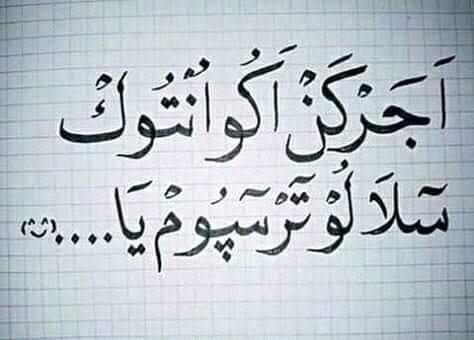 اَجَرْكَنْ اَكُو اُنْتُوكْ
سٓلَالُوْ تٓرْسٓپُومْ يَا....(^‿^)